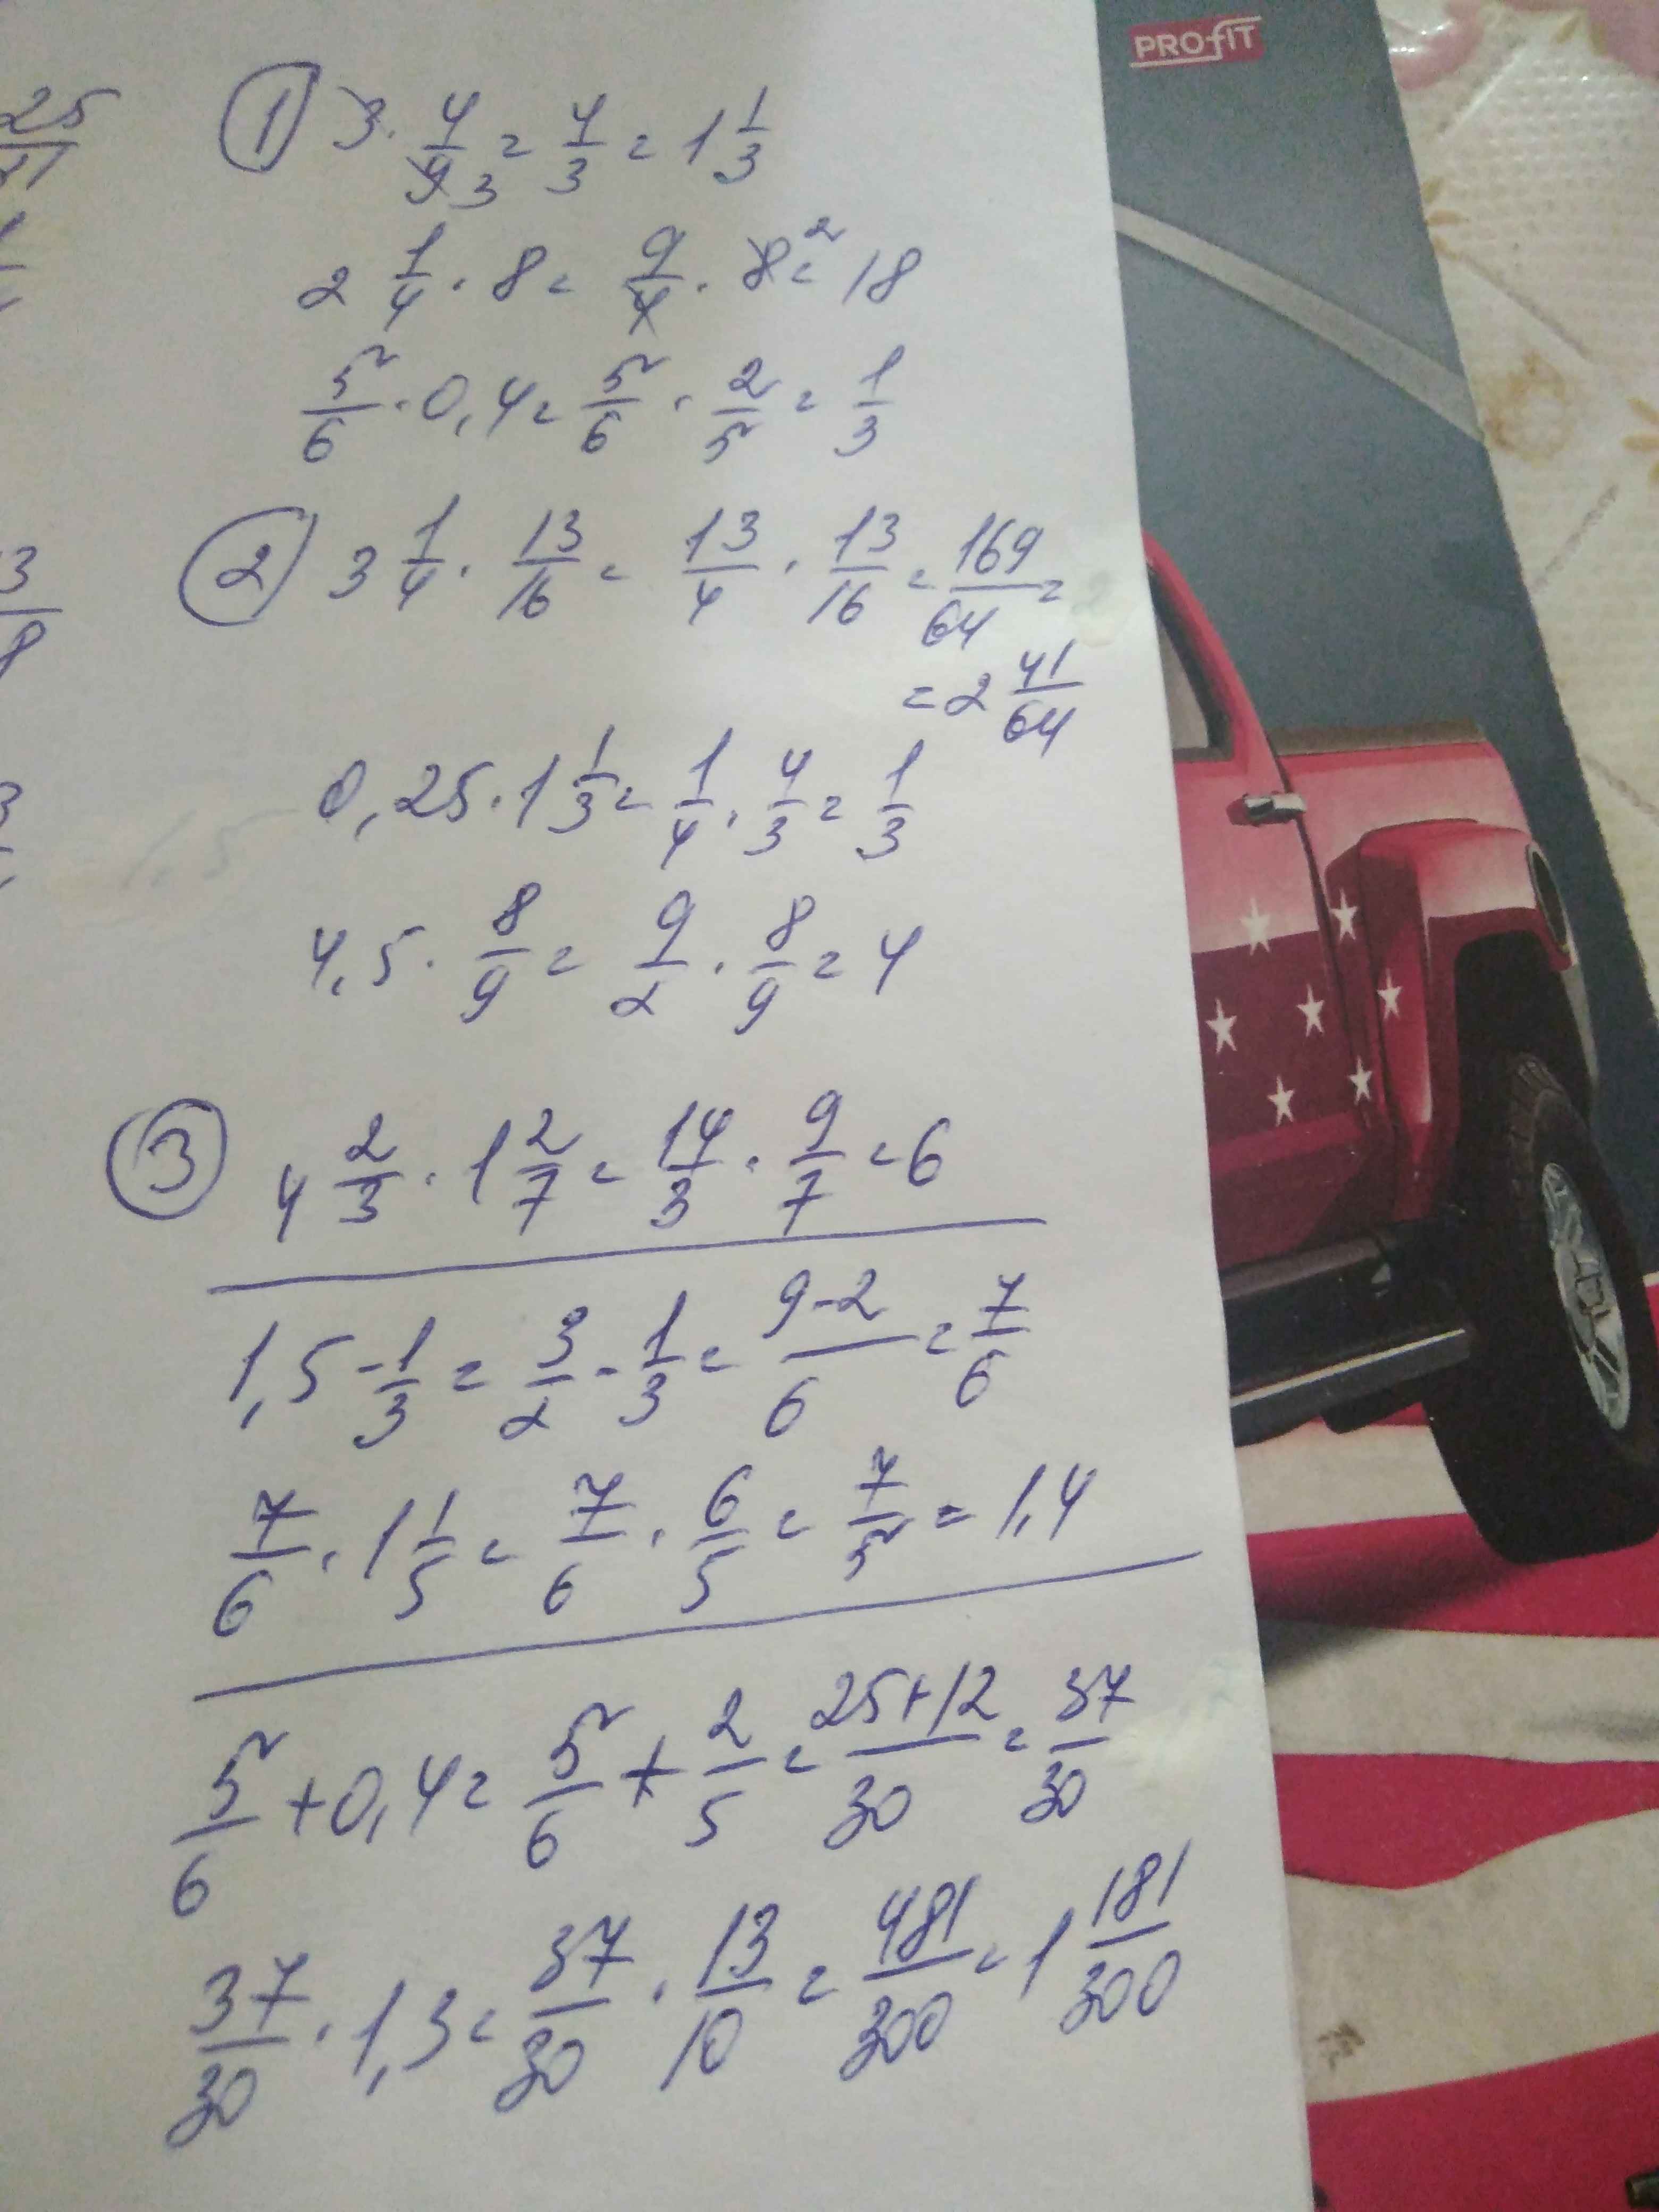 PROFIT
25
1) 3 · 4/9 3 = 4/3 = 1 1/3
2 1/4 · 8 = 9/4 · 8 2 = 18
5/6 · 0,4 = 5/6 · 2/5 = 1/3
3/8
2) 3 1/4 · 13/16 = 13/4 · 13/16 = 169/64 =
= 2 41/64
0,25 · 1 1/3 = 1/4 · 4/3 = 1/3
4,5 · 8/9 = 9/2 · 8/9 = 4
3) 4 2/3 · 1 2/7 = 14/3 · 9/7 = 6
1,5 - 1/3 = 3/2 - 1/3 = 9-2/6 = 7/6
7/6 · 1 1/5 = 7/6 · 6/5 = 7/5 = 1,4
5/6 + 0,4 = 5/6 + 2/5 = 25+12/30 = 37/30
37/30 · 1,3 = 37/30 · 13/10 = 481/300 = 1 181/300